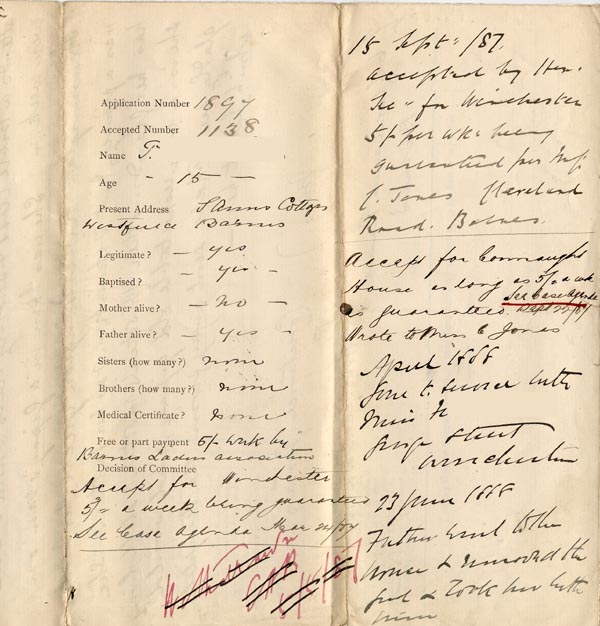 Application Number 1897
Accepted Number 1138
Name T.
Age - 15 -
Present Address Cottages
Westfield Barnes
Legitimate? - yes
Baptised? - yes -
Mother alive? - no -
Father alive? - yes -
Sisters (how many?) none
Brothers (how many?) none
Medical Certificate? none
Free or part payment 5/- week by
Barnes Ladies association
Decision of Committee
Accept for Winchester
5/- a week being guaranteed
See Case Agenda
15 Sept: /87.
Accepted by Hon.
Sec. for Winchester
5/- per wk: being
guaranteed per Miss
C. Jones Cleveland
Road. Barnes.
Accept for Connaught
House as long as 5/- a wk
See Case Agenda
is guaranteed. Sept 22/87
Wrote to Miss C Jones
April 1888
Gone to service with
Miss
George Street
Winchester
23 June 1888
Father went to the
House & removed the
girl & took her with
him